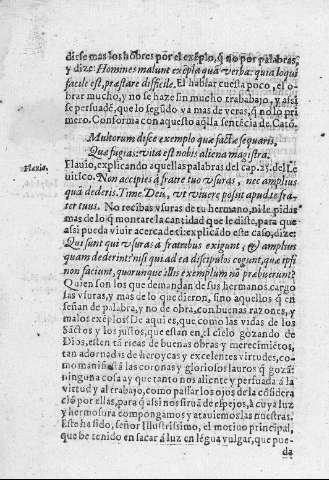 dirse mas los hõbres por el exẽplo, q̃ no por palabras,
y dize: Homines malunt exẽpla quã verba: quia loqui
facile est, præstare difficile. El hablar cuesta poco, el o-
brar mucho, y no se haze sin mucho trababajo, y assi
se persuadẽ, que lo segũdo va mas de veras, q̃ no lo pri
mero. Conforma con aquesto aq̃lla sentẽcia de Catõ.
Multorum disce exemplo quæ factæ sequaris,
Quæ fugias: vita est nobis aliena magistra.
Flauio.
Flauio, explicando aquellas palabras del cap. 25. del Le
uitico. Non accipies à fratre tuo vsuras, nec amplius
quã dederis. Time Deũ, vt viuere possit apud te fra-
ter tuus. No recibas vsuras de tu hermano, ni le pidas
mas de lo q̃ montare la cantidad que le diste, para que
assi pueda viuir acerca de ti: explicãdo este caso, dize:
Qui sunt qui vsuras à fratribus exigunt, & amplius
quam dederint? nisi qui ad ea discipulos cogunt, quæ ipsi
non faciunt, quorunque illis exemplum nõ præbuerunt?
Quien son los que demandan de sus hermanos, cargo
las vsuras, y mas de lo que dieron, sino aquellos q̃ en
señan de palabra, y no de obra, con buenas razones, y
malos exẽplos? De aqui es, que como las vidas de los
Sãctos y los justos, que estan en el cielo gozando de
Dios, estẽn tã ricas de buenas obras y merecimiẽtos,
tan adornadas de heroycas y excelentes virtudes, co-
mo manifiestã las coronas y gloriosos lauros q̃ gozã:
ninguna cosa ay que tanto nos aliente y persuada à la
virtud y al trabajo, como passar los ojos de la cõsidera
ciõ por ellas, para q̃ assi nos siruã de espejos, à cuya luz
y hermosura compongamos y atauiemos las nuestras.
Este ha sido, señor Illustrissimo, el motiuo principal,
que he tenido en sacar à luz en lẽgua vulgar, que pue-
da